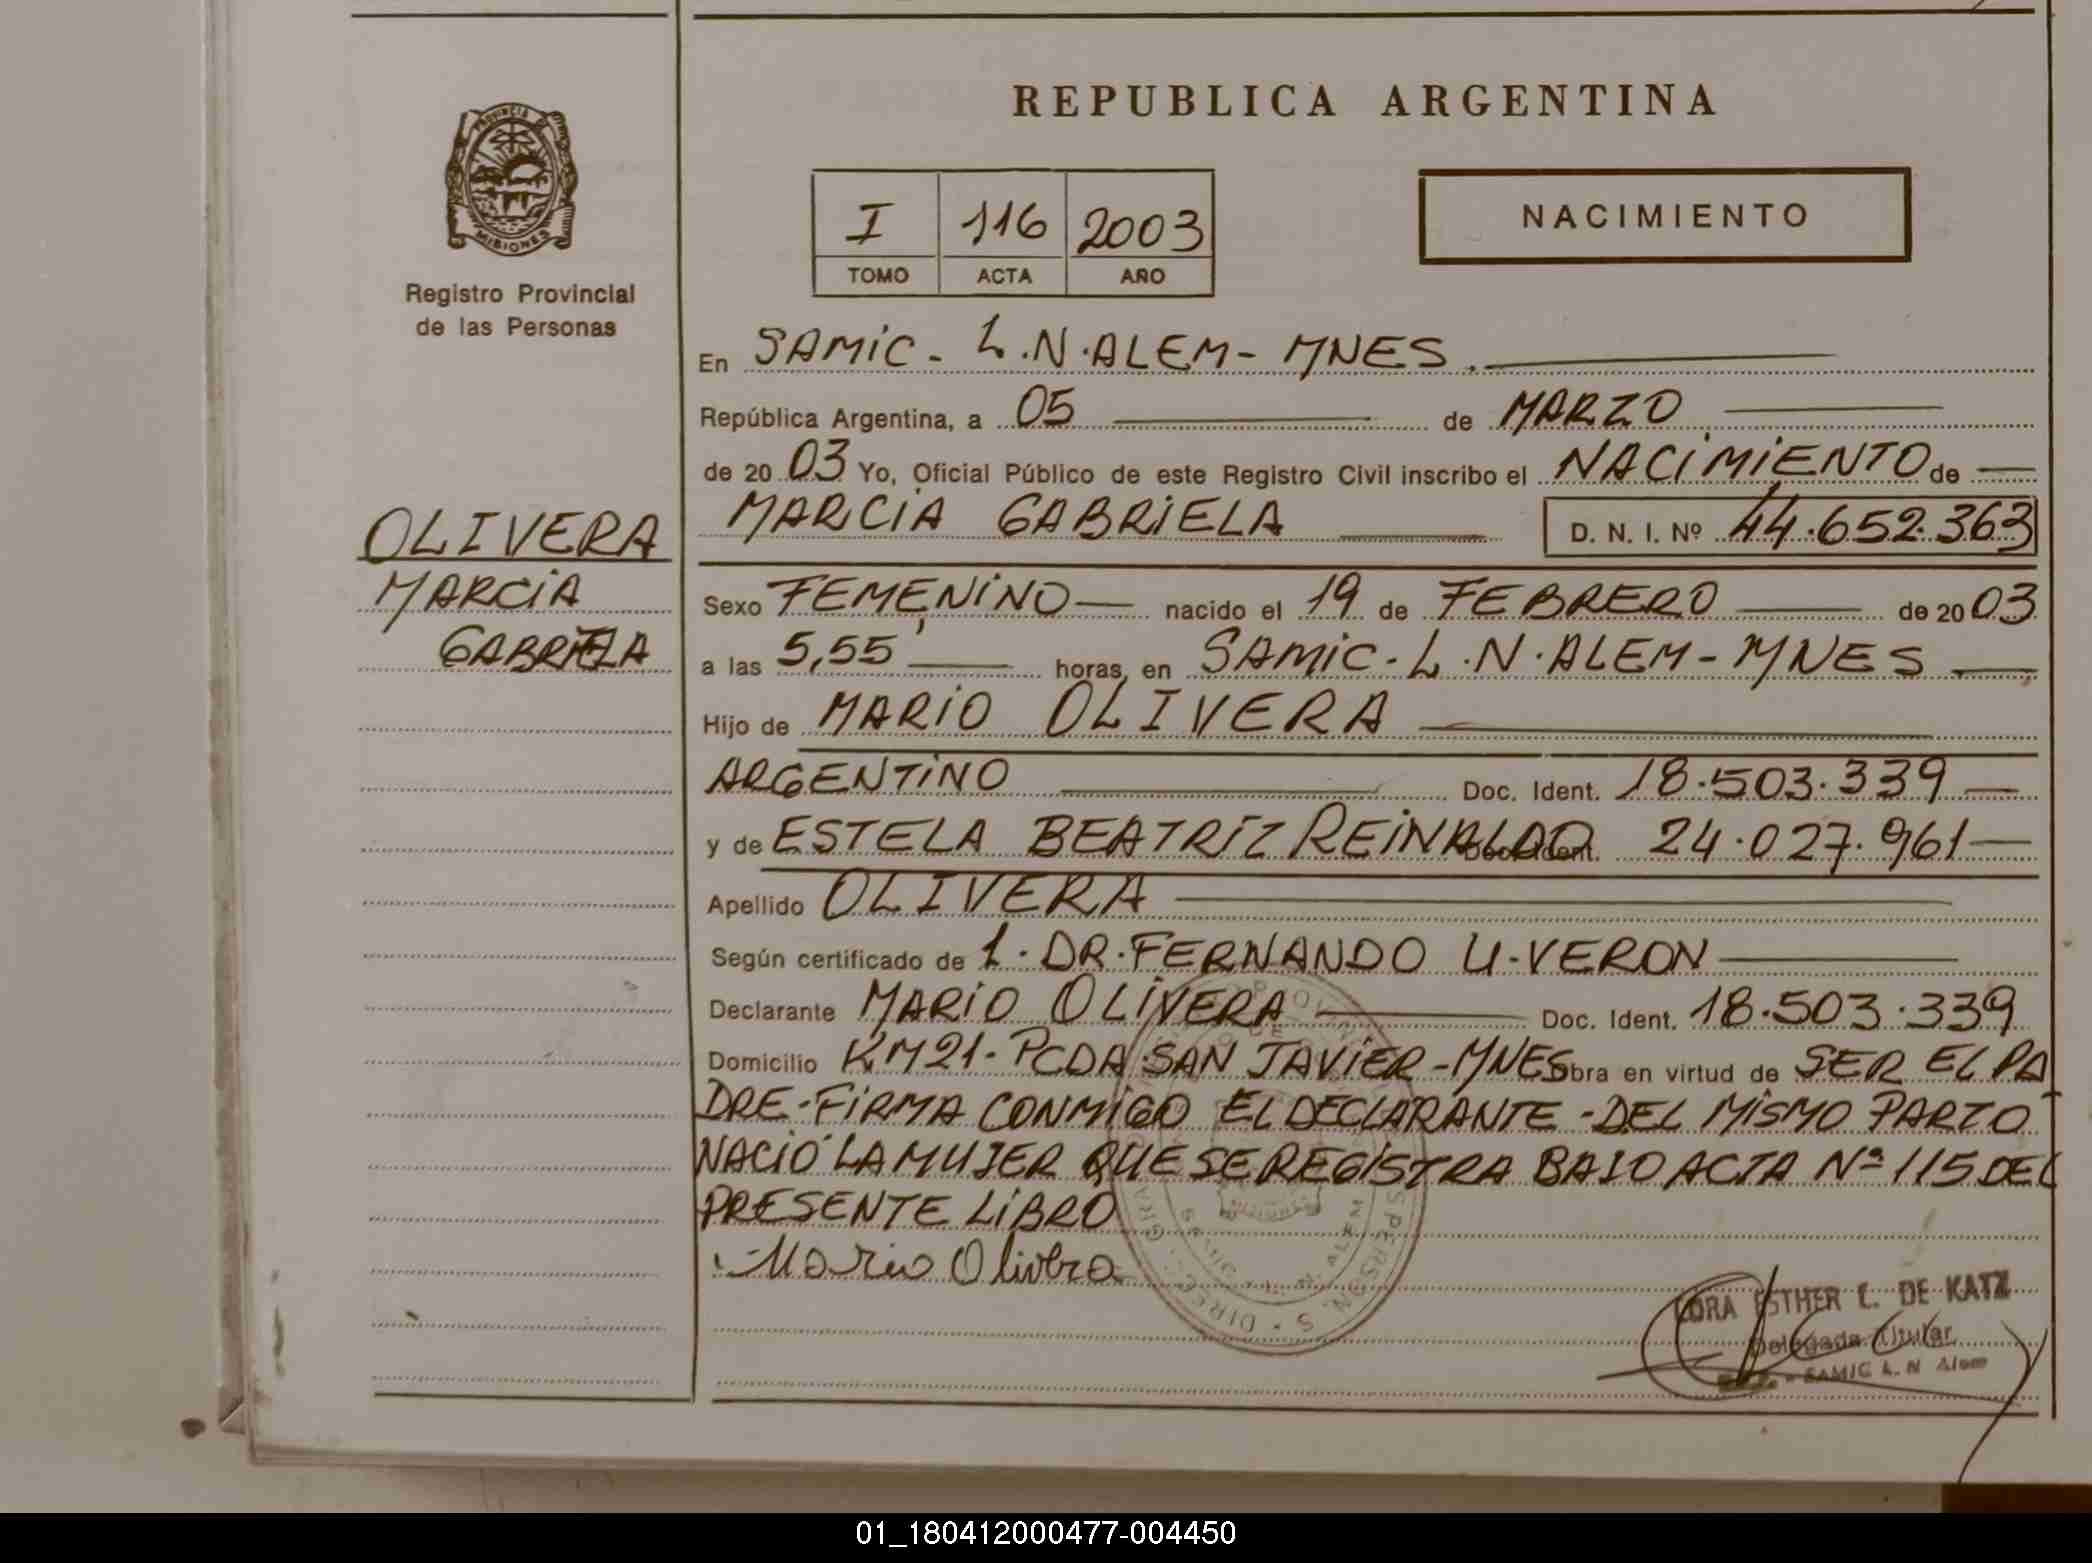 REPUBLICA ARGENTINA
PROVINCIA DE
MISIONES
Registro Provincial
de las Personas
I 116 2003
TOMO ACTA AÑO
NACIMIENTO
En SAMIC - L.N.ALEM - MNES.
República Argentina, a 05 de MARZO
de 2003 Yo, Oficial Público de este Registro Civil inscribo el NACIMIENTO de
MARCIA GABRIELA D. N. I. Nº 44.652.363
OLIVERA
MARCIA
GABRIELA
Sexo FEMENINO nacido el 19 de FEBRERO de 2003
a las 5,55' horas, en SAMIC - L.N.ALEM - MNES
Hijo de MARIO OLIVERA
ARGENTINO Doc. Ident. 18.503.339
y de ESTELA BEATRIZ REINALDO Doc. Ident. 24.027.961
Apellido OLIVERA
Según certificado de 1. DR. FERNANDO U. VERON
Declarante MARIO OLIVERA Doc. Ident. 18.503.339
Domicilio KM21 - PCDA. SAN JAVIER - MNES Obra en virtud de SER EL PA
DRE - FIRMA CONMIGO EL DECLARANTE - DEL MISMO PARTO
NACIO LA MUJER QUE SE REGISTRA BAJO ACTA Nº 115 DEL
PRESENTE LIBRO
Mario Olivera
ESTHER L. DE KATZ
Delegada Titular
SAMIC L. N Alem
01_180412000477-004450